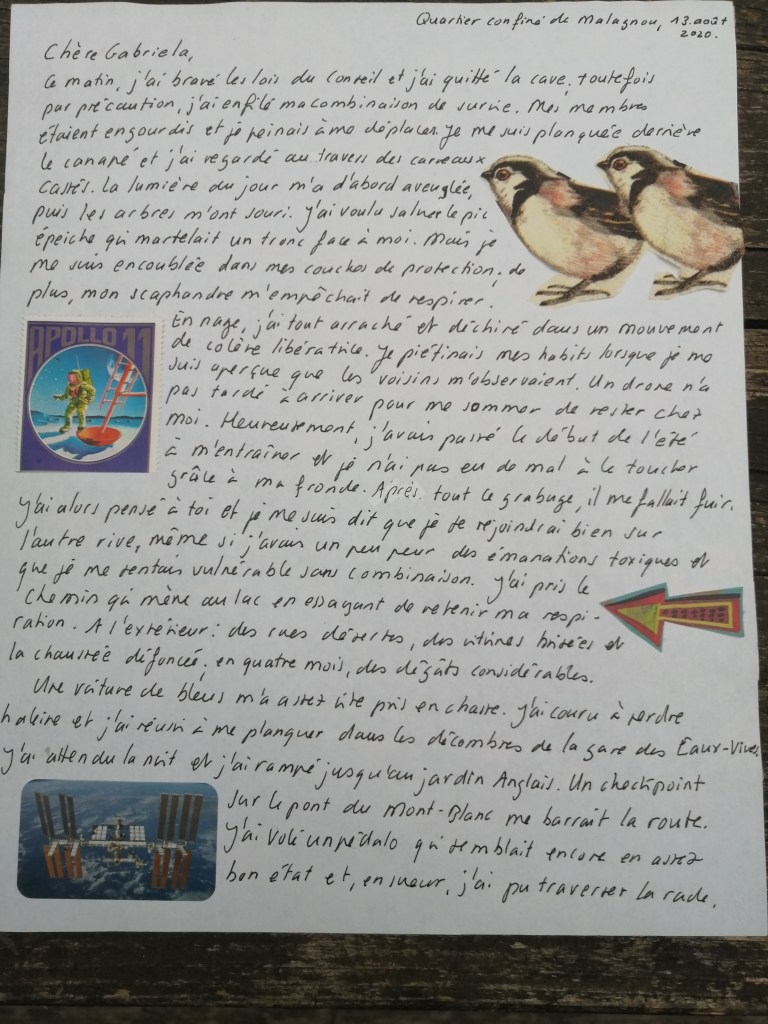 Quartier confiné de Malagnou, 13.août
2020.
Chère Gabriela,
Ce matin, j'ai bravé les lois du Conseil et j'ai quitté la cave, toutefois
par précaution, j'ai enfilé ma combinaison de survie. Mes membres
étaient engourdis et je peinais à me déplacer. Je me suis planquée derrière
le canapé et j'ai regardé au travers des carreaux
cassés. La lumière du jour m'a d'abord aveuglée,
puis les arbres m'ont souri. J'ai voulu saluer le pic
épeiche qui martelait un tronc face à moi. Mais je
me suis encoublée dans mes couches de protection, de
plus, mon scaphandre m'empêchait de respirer.
APOLLO 11
En nage, j'ai tout arraché et déchiré dans un mouvement
de colère libératrice. Je piétinais mes habits lorsque je me
suis aperçue que les voisins m'observaient. Un drone n'a
pas tardé à arriver pour me sommer de rester chez
moi. Heureusement, j'avais passé le début de l'été
à m'entraîner et je n'ai pas eu de mal à le toucher
grâce à ma fronde. Après tout ce grabuge, il me fallait fuir.
J'ai alors pensé à toi et je me suis dit que je te rejoindrai bien sur
l'autre rive, même si j'avais un peu peur des émanations toxiques et
que je me sentais vulnérable sans combinaison. J'ai pris le
chemin qui mène au lac en essayant de retenir ma respi-
ration. A l'extérieur: des rues désertes, des vitrines brisées et
la chaussée défoncée; en quatre mois, des dégâts considérables.
Une voiture de bleus m'a assez vite pris en chasse. J'ai couru à perdre
haleine et j'ai réussi à me planquer dans les décombres de la gare des Eaux-Vives.
J'ai attendu la nuit et j'ai rampé jusqu'au jardin Anglais. Un checkpoint
sur le pont du Mont-Blanc me barrait la route.
J'ai volé un pédalo qui semblait encore en assez
bon état et, en sueur, j'ai pu traverser la rade.